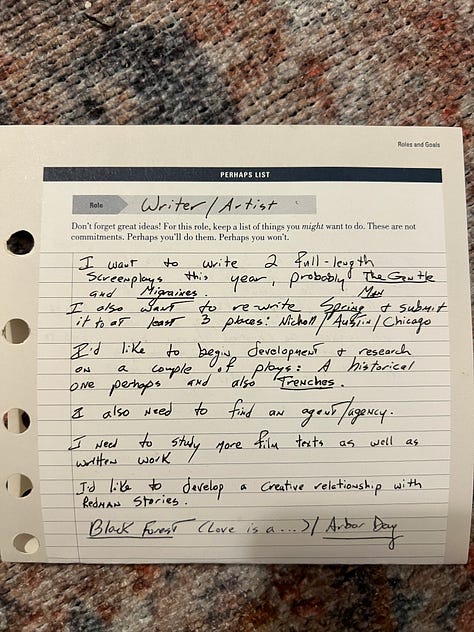 Roles and Goals
PERHAPS LIST
Role Writer/Artist
Don't forget great ideas! For this role, keep a list of things you might want to do. These are not
commitments. Perhaps you'll do them. Perhaps you won't.
I want to write 2 full-length
screenplays this year, probably The Gentle
and Migraines. Man
I also want to re-write Spring & submit
it to at least 3 places: Nicholl/Austin/Chicago
I'd like to begin development & research
on a couple of plays: A historical
one perhaps and also Trenches.
I also need to find an agent/agency.
I need to study more film texts as well as
written work
I'd like to develop a creative relationship with
Redman Stories.
Black Forest (Love is a...)/ Arbor Day